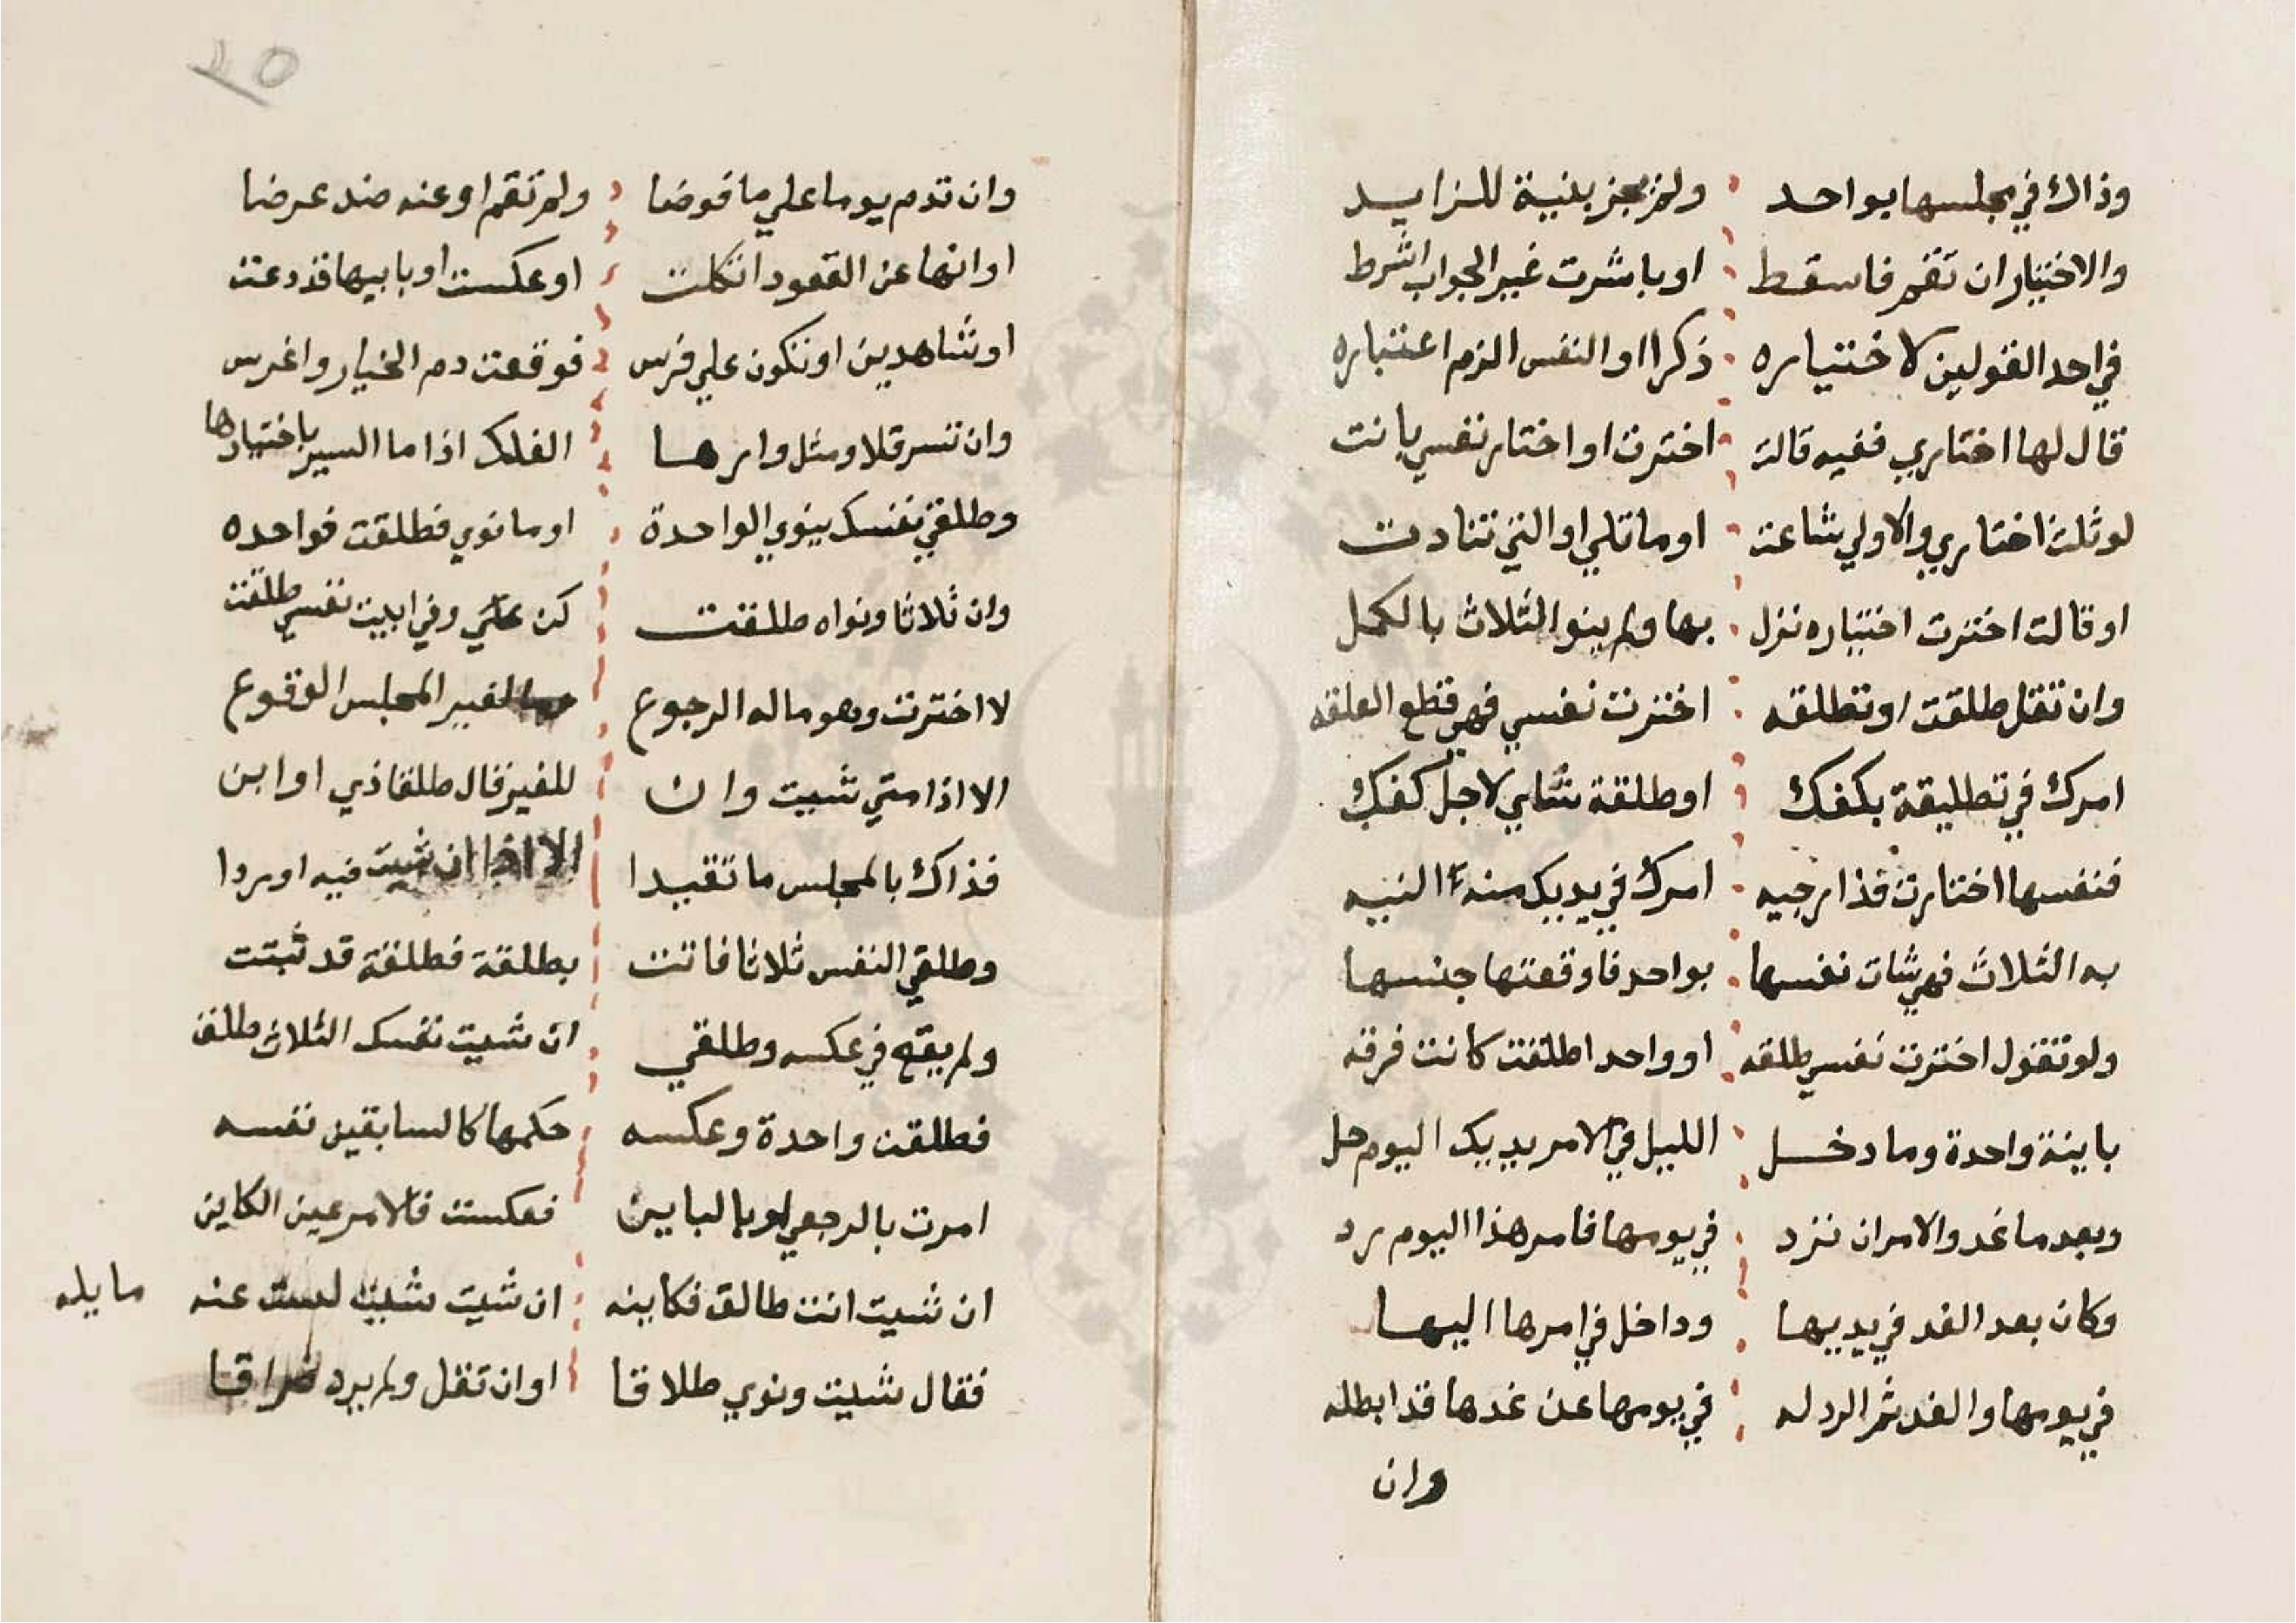 وذاك في مجلسها بواحد ولم يجز بنية للزايد
والاختيار ان تقم فاسقط او باشرت غير الجواب اشرط
في احد القولين لاختياره ذكرا او النفس الزم اعتباره
قال لها اختاري ففيه قالت اخترت او اختار نفسي بانت
لو ثلث اختاري والاولي شاعت او ما تلي او التي تنادت
او قالت اخترت اختياره نزل بها ولم ينو الثلاث بالكمل
وان تقل طلقت او تطلقه اخترت نفسي فهي قطع العلقه
امرك في تطليقة بكفك او طلقة شاي لاجل كفك
فنفسها اختارت فذا رجيه امرك في يديك منه النيه
به الثلاث فهي شات نفسها بواحد فاوقعتها جنسها
ولو تقول اخترت نفسي طلقه او واحدا طلقت كانت فرقه
باينة واحدة وما دخل الليل في الامر بيديك اليوم حل
وبعد ما غد والامران ترد في يومها فامر هذا اليوم رد
وكان بعد الغد في يديها وداخل في امرها اليها
في يومها والغد ثم الرد له في يومها عن غدها قد ابطله
وان
٢٥
وان تدم يوما علي ما فوضا ولم تقم او عنه ضد عرضا
او انها عن القعود اتكلت او عكست او بابيها قد دعت
او شاهدين او تكون علي فرس فوقفت دم الخيار واغرس
وان تسر قلا ومثل دارها الفلك اذا ما السير باختيارها
وطلقي نفسك ينوي الواحدة او ما نوي فطلقت فواحده
وان ثلاثا ونواه طلقت كن علي وفي ابيت نفسي طلقت
لا اخترت وهو ماله الرجوع لغير المجلس الوقوع
الا اذا متي شيت وان للغير قال طلقا ذي او ابن
فذاك بالمجلس ما تقيدا الا اذا ان شيت فيه او ردا
وطلقي النفس ثلاثا فاتت بطلقة فطلقة قد ثبتت
ولم يقع في عكسه وطلقي ان شيت نفسك الثلاث طلقت
فطلقت واحدة وعكسه حكمها كالسابقين نفسه
امرت بالرجعي او بالباين فعكست فالامر عين الكاين
ان شيت انت طالق فكاينه ان شيت شيت لست عنه مايله
فقال شيت ونوي طلاقا او ان تقل ولم يرد فراقا